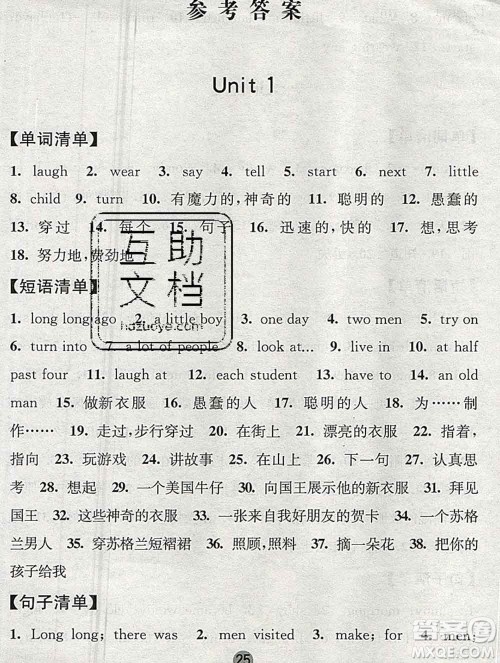 参考答案
Unit 1
【单词清单】
1. laugh 2. wear 3. say 4. tell 5. start 6. next 7. little
8. child 9. turn 10. 有魔力的，神奇的 11. 聪明的 12. 愚蠢的
13. 穿过 14. 每个 15. 句子 16. 迅速的，快的 17. 想，思考
18. 努力地，费劲地
【短语清单】
1. long long ago 2. a little boy 3. one day 4. two men 5. try on
6. turn into a lot of people 8. look at… 9. live in 10. at half
past four 11. laugh at 12. each student 13. have to 14. an old
man 15. 做新衣服 16. 愚蠢的人 17. 聪明的人 18. 为……制
作…… 19. 走过，步行穿过 20. 在街上 21. 漂亮的衣服 22. 指着，
指向 23. 玩游戏 24. 讲故事 25. 在山上 26. 下一句 27. 认真思
考 28. 想起 29. 一个美国牛仔 30. 向国王展示他的新衣服 31. 拜见
国王 32. 这些神奇的衣服 33. 一张来自我好朋友的贺卡 34. 一个苏格
兰男人 35. 穿苏格兰短褶裙 36. 照顾，照料 37. 摘一朵花 38. 把你的
孩子给我
【句子清单】
1. Long long; there was 2. men visited 3. make; for 4. men;
25
互助
文档
hazuoye.com
作业答案
MXQE.COM